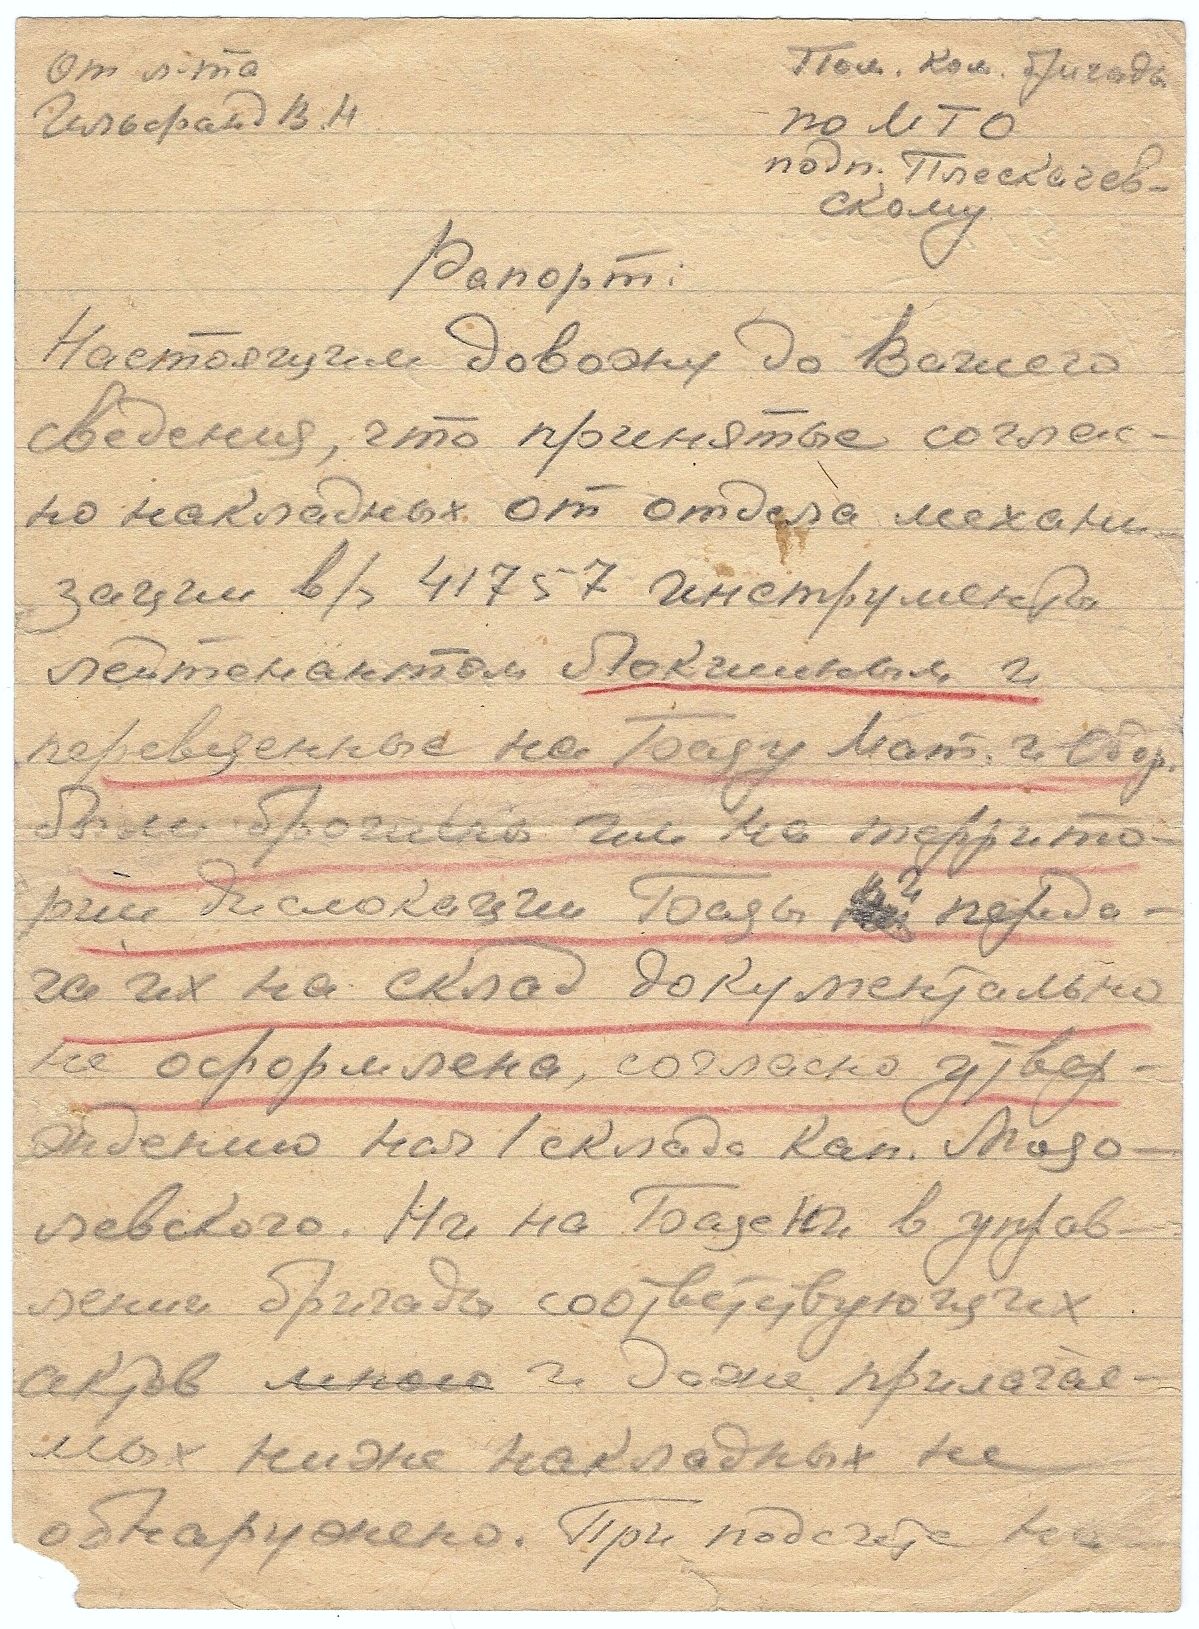 От л-та
Гильфанд В.Н
Пом. Ком. бригады
по МТО
подп. Плескачев-
скому
Рапорт:
Настоящим довожу до Вашего
сведения, что принятые соглас-
но накладных от отдела механи-
зации в/ч 41757 инструменты
лейтенантом Локшиным и
переведенные на Базу Мат. и Обор.
были брошены им на террито-
рии дислокации Базы и переда-
ча их на склад документально
не оформлена, согласно утвер-
ждению нач/склада Кап. Мозо-
левского. Ни на Базе ни в управ-
лении бригады соответствующих
актов мною и даже прилагае-
мых ниже накладных не
обнаружено. При подсчете на